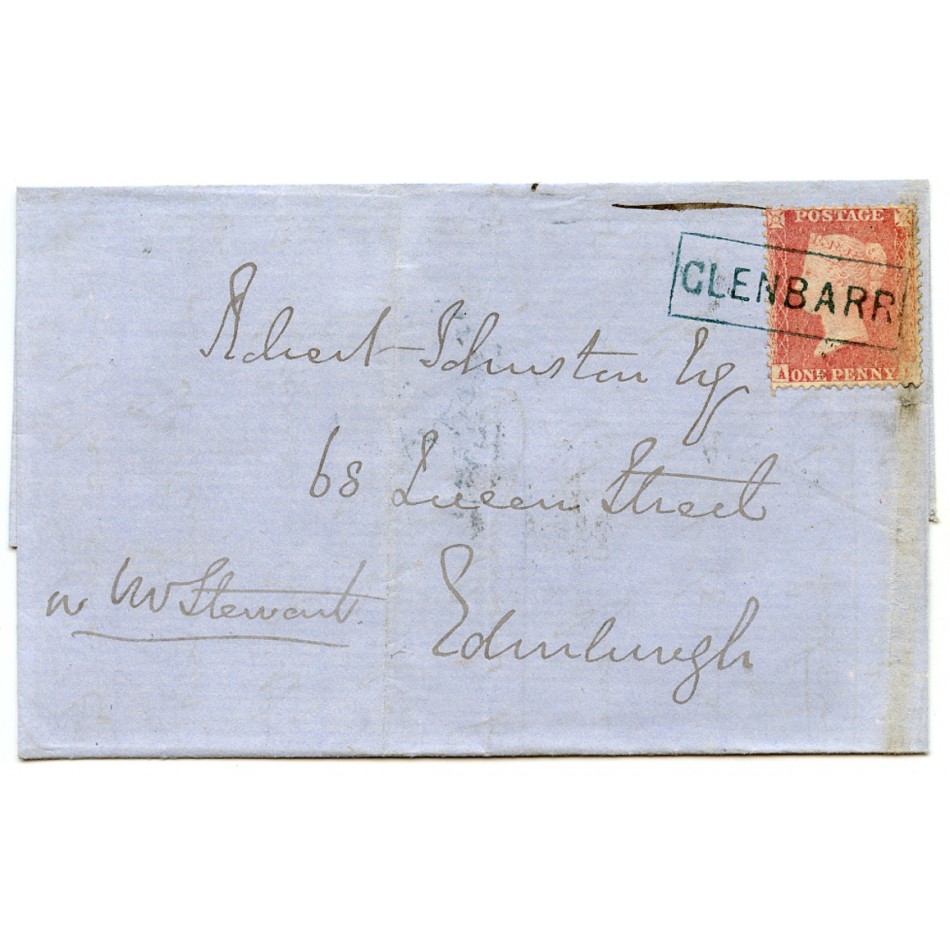 POSTAGE
GLENBARR
A ONE PENNY
Robert Johnston Esq
68 Queen Street
Stewart
Edinburgh